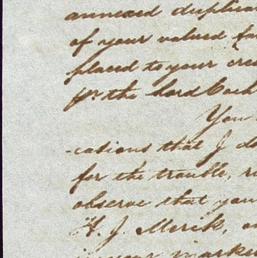 annexed duplica
of your valued fa
placed to your cre
pr. the Lord Coch
You
-cations that I do
for the trouble, r
observe that you
H. J. Merik, an
in your marke